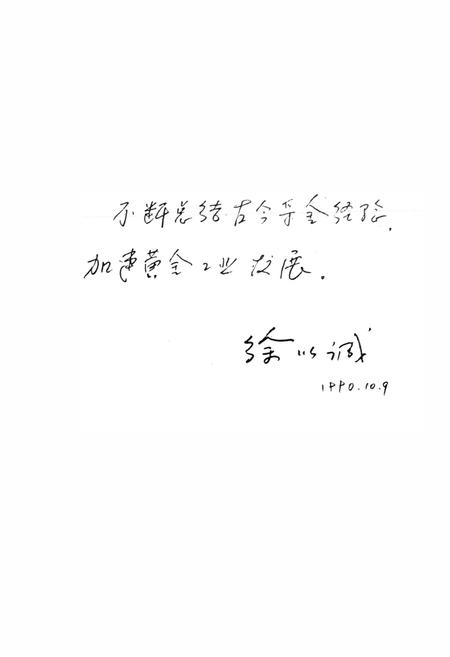 不断总结古今采金经验,
加速黄金工业发展.
徐以诚
1990.10.9